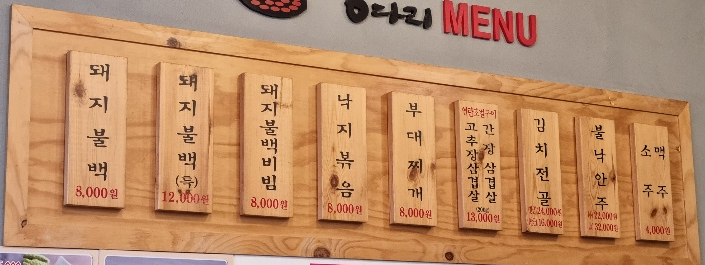 MENU
돼지불백
8,000원
돼지불백(특)
12,000원
돼지불백비빔
8,000원
낙지볶음
8,000원
부대찌개
8,000원
연탄초벌구이
간장삼겹살
고추장삼겹살
13,000원
김치전골
24,000원
16,000원
불낙안주
22,000원
32,000원
소주
맥주
4,000원